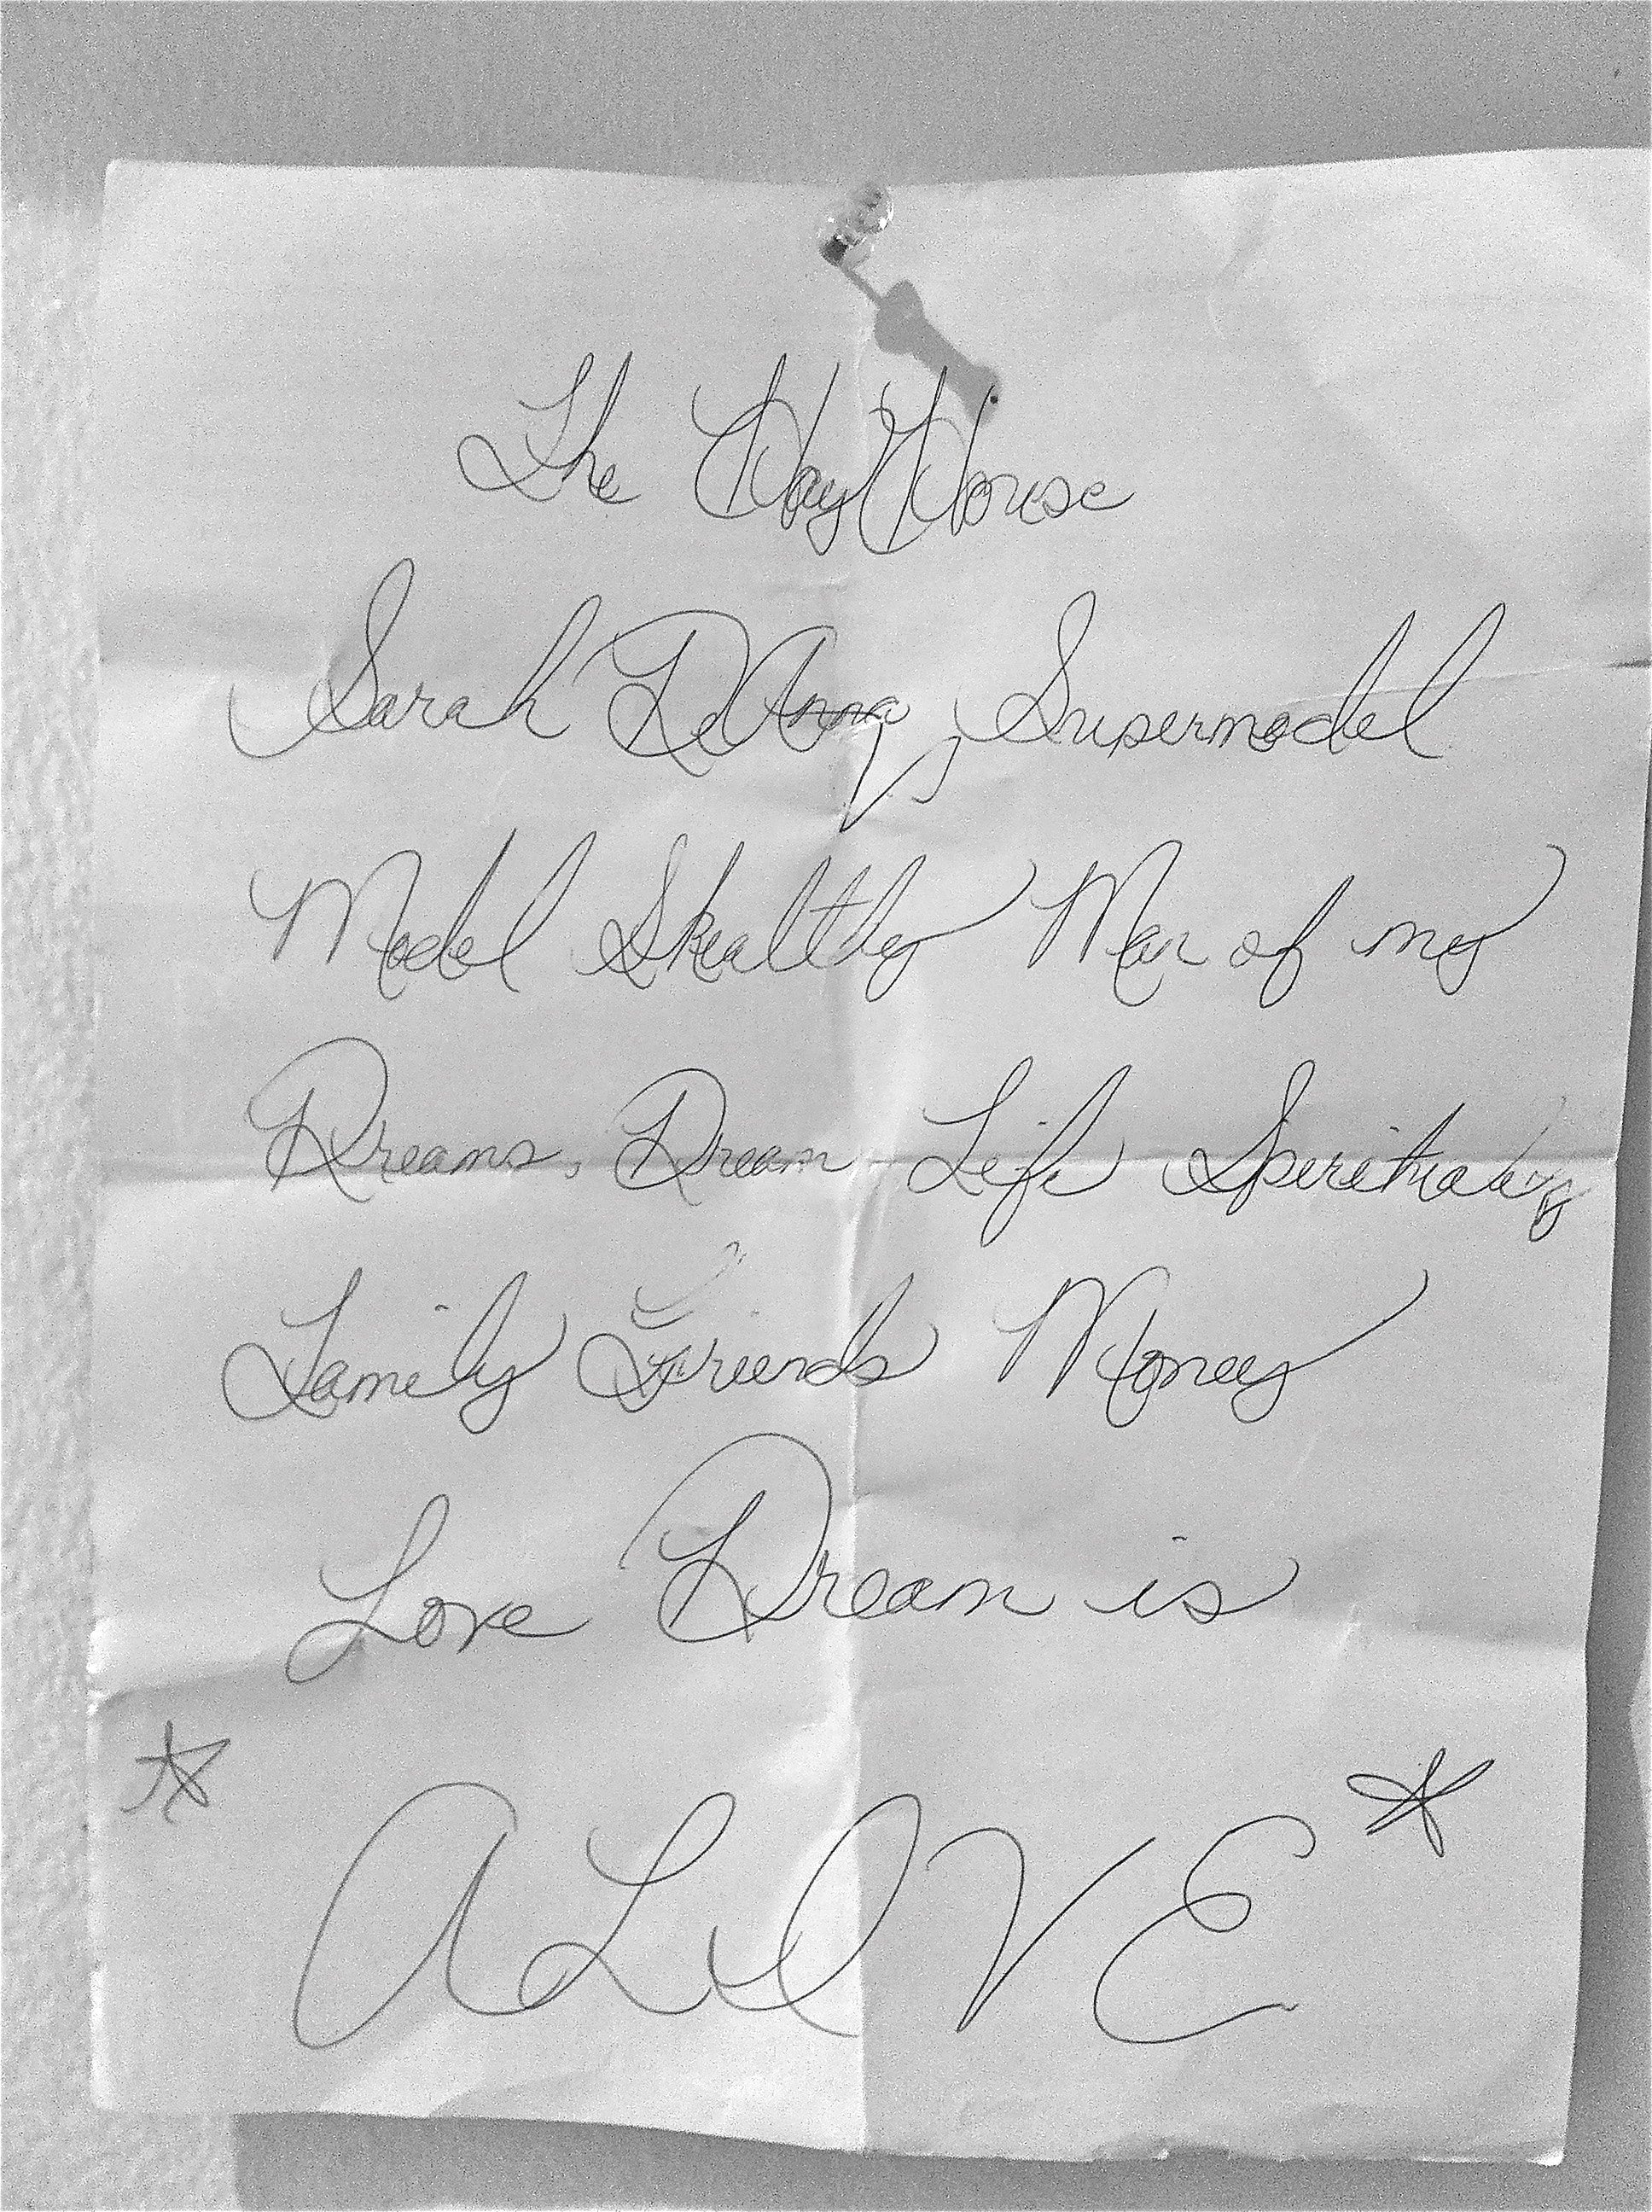 The Hay House
Sarah DeAnna, Supermodel
Model Shealthy Man of my
Dreams, Dream Life Spirituality
Family Friends Money
Love Dream is
ALIVE